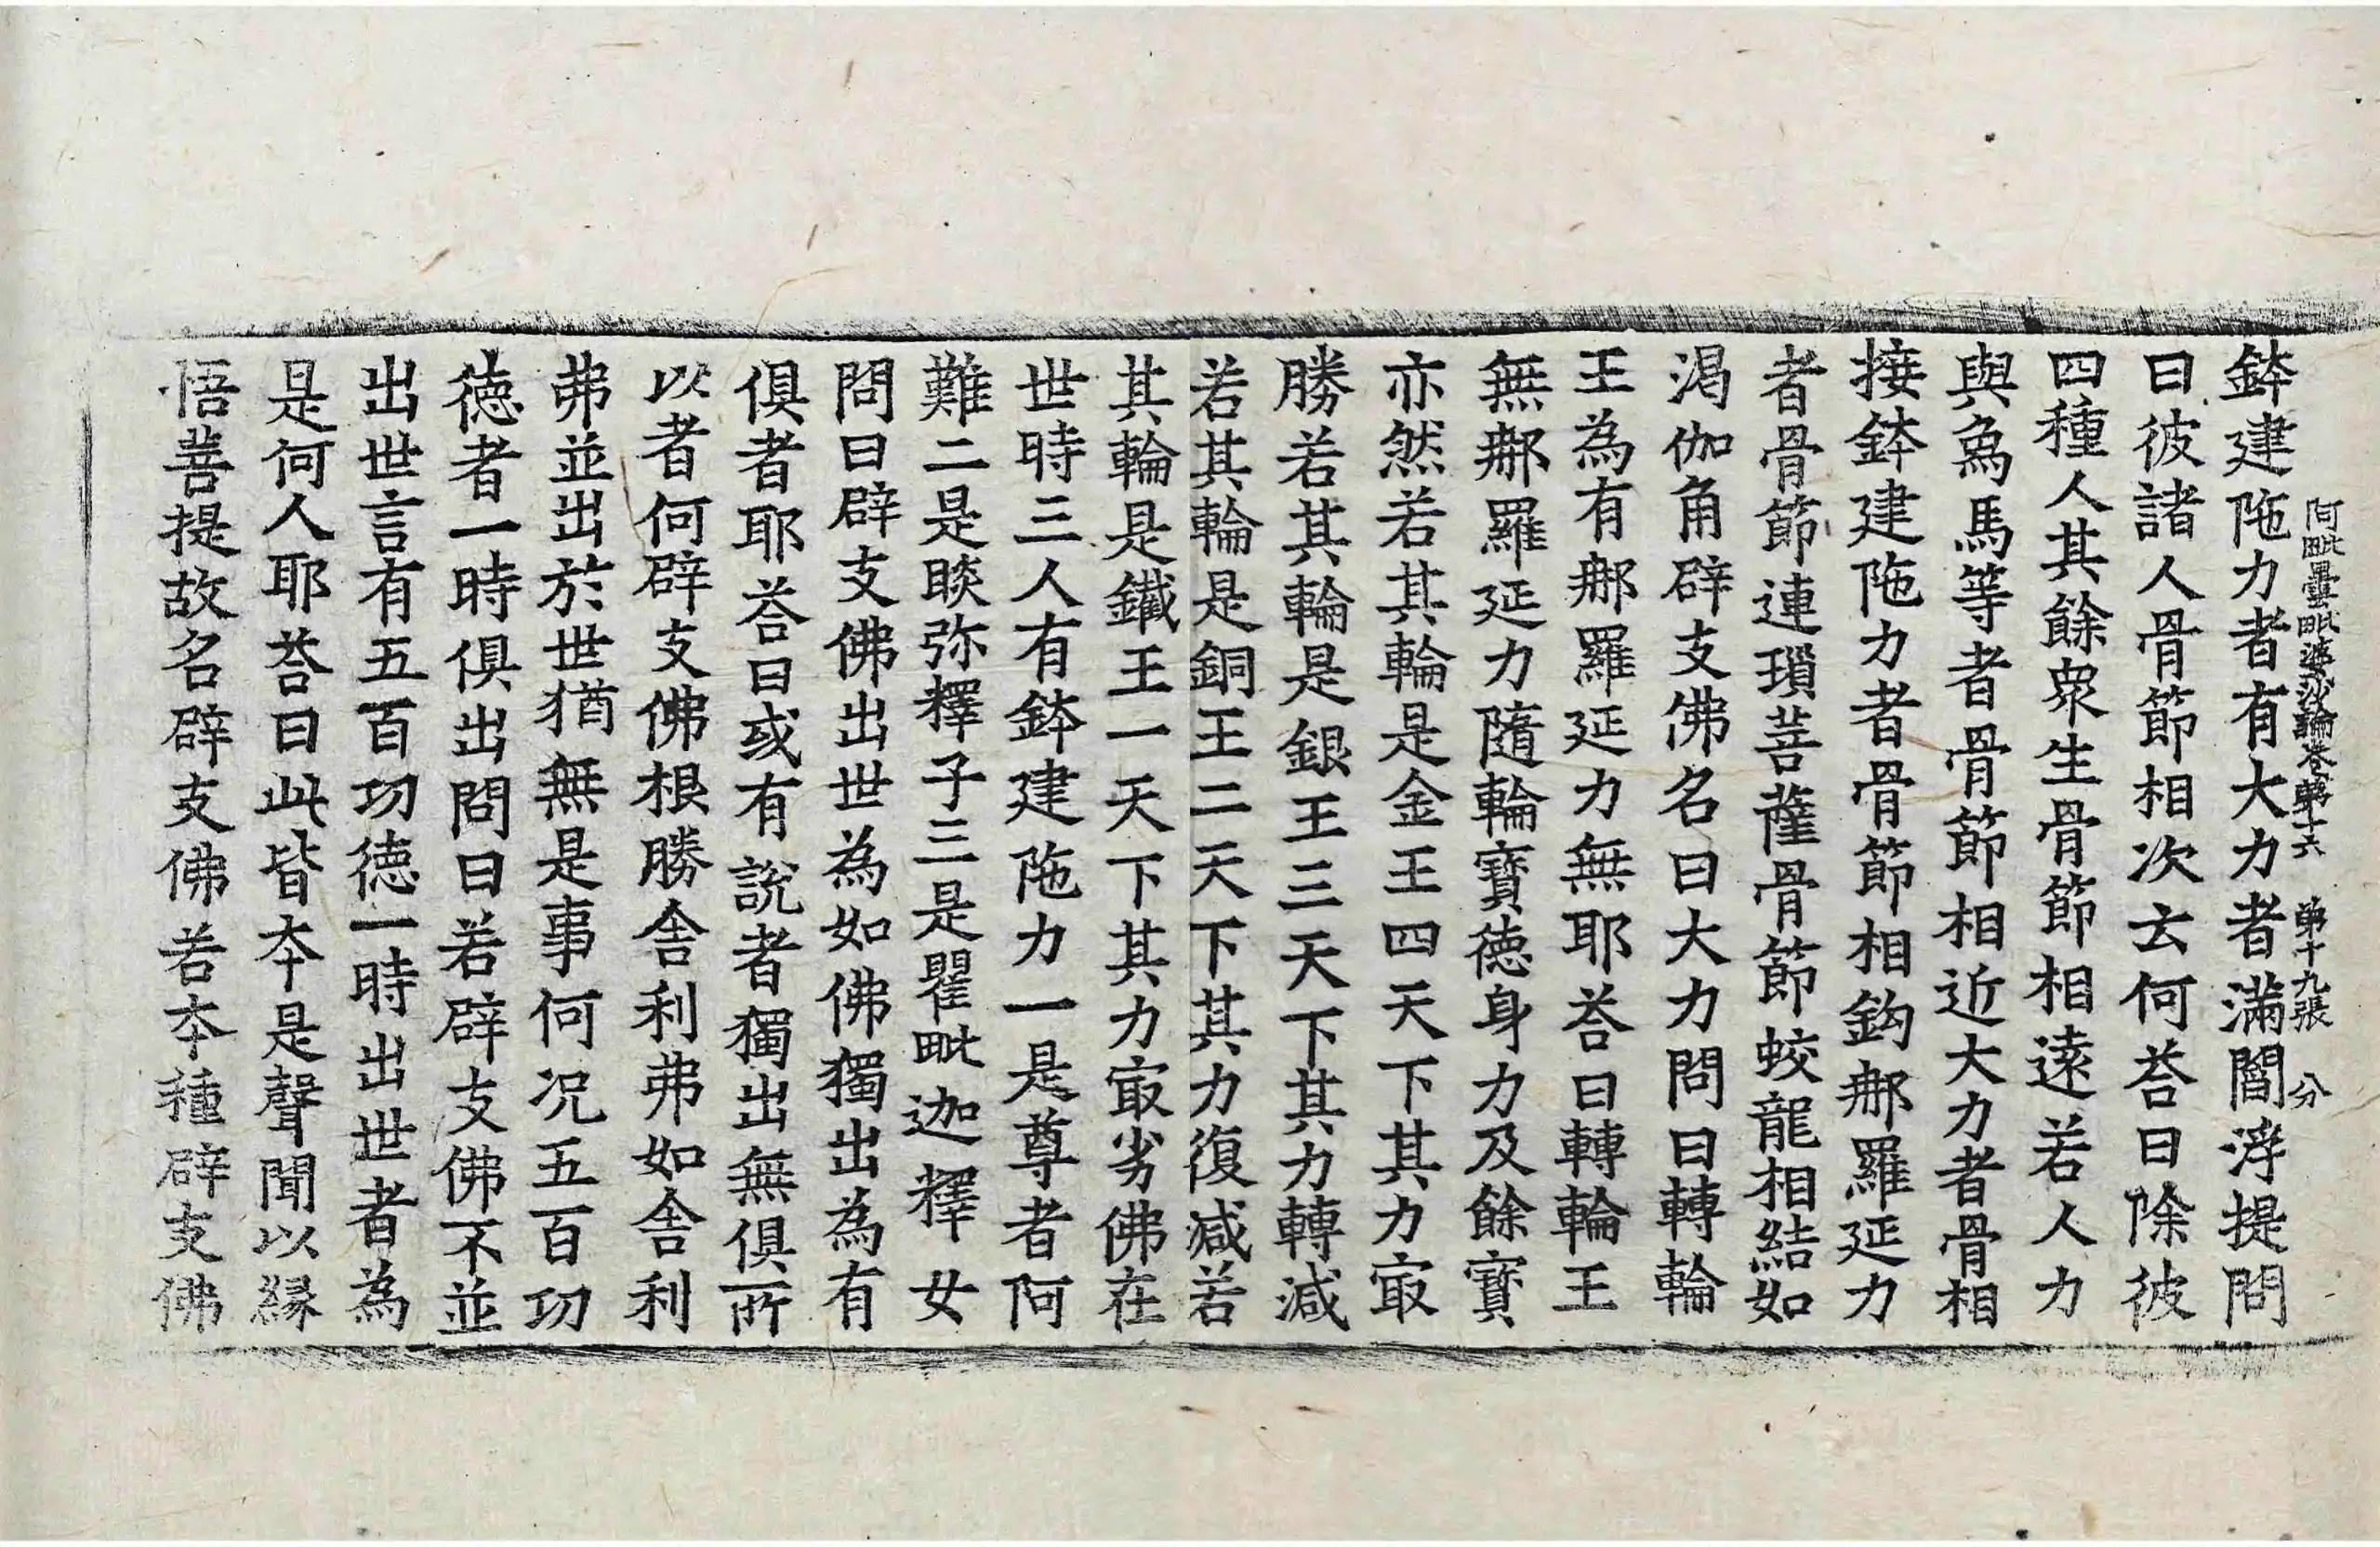 阿毗曇毗婆沙論卷第十六　第十九張　分
鉢建陁力者有大力者滿閻浮提問
曰彼諸人骨節相次云何荅曰除彼
四種人其餘衆生骨節相遠若人力
與𤉢馬等者骨節相近大力者骨相
接鉢建陁力者骨節相鈎𨚗羅延力
者骨節連瑣菩薩骨節蛟龍相結如
渇伽角辟支佛名曰大力問曰轉輪
王為有𨚗羅延力無耶荅曰轉輪王
無𨚗羅延力隨輪寶德身力及餘寶
亦然若其輪是金王四天下其力㝡
勝若其輪是銀王三天下其力轉減
若其輪是銅王二天下其力復減若
其輪是鐵王一天下其力㝡劣佛在
世時三人有鉢建陁力一是尊者阿
難二是睒弥釋子三是瞿毗迦釋女
問曰辟支佛出世為如佛獨出為有
俱者耶荅曰或有說者獨出無俱所
以者何辟支佛根勝舍利弗如舍利
弗並出於世猶無是事何况五百功
徳者一時俱出問曰若辟支佛不並
出世言有五百功徳一時出世者為
是何人耶荅曰此皆本是聲聞以縁
悟菩提故名辟支佛若本種辟支佛